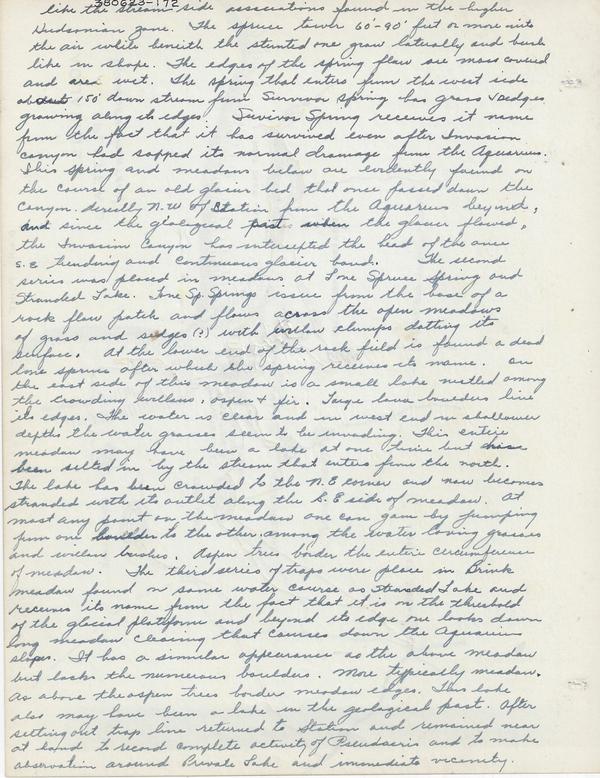 380623-172
like the stream side associations found in the higher
Hudsonian zone. The spruce tower 60'-90' feet or more into
the air while beneath the stunted one grow laterally and bush
like in shape. The edges of the spring flow are moss covered
and area wet. The spring that enters from the west side
about 150' down stream from Survivor Spring has grass & sedges
growing along its edges. Suvivor Spring receives it name
from the fact that it has survived even after Invasion
Canyon had sapped its normal drainage from the Aquarius.
This spring and meadows below are evidently found on
the course of an old glacier bed that once passed down the
Canyon. directly N.W of Station from the Aquarius beyond,
and since the geological past when the glacier flowed,
the Invasion Canyon has intercepted the head of the once
S.E trending and continuous glacier band. The second
series was placed in meadows at Lone Spruce Spring and
Stranded Lake. Lone Sp. Springs issue from the base of a
rock flow patch and flows across the open meadows
of grass and sedges (?) with willow clumps dotting its
surface. At the lower end of the rock field is found a dead
lone spruce after which the spring receives its name. On
the east side of this meadow is a small lake nestled among
the crowding willows, aspen & fir. Large lava boulders line
its edges. The water is clear and in west end in shallower
depths the water grasses seem to be invading. This entire
meadow may have been a lake at one time but has
been silted in by the stream that enters from the north.
The lake has been crowded to the N.E corner and now becomes
stranded with its outlet along the S.E side of meadow. At
most any point on the meadow one can gain by jumping
from one boulder to the other among the water loving grasses
and willow bushes. Aspen trees border the entire circumference
of meadow. The third series of traps were place in Brink
meadow found on same water course as Stranded Lake and
receives its name from the fact that it is on the threshold
of the glacial platform and beyond its edge one looks down
long meadow clearing that courses down the Aquarius
slopes. It has a similar appearance as the above meadow
but lacks the numerous boulders. More typically meadow.
As above the aspen trees border meadow edges. This lake
also may have been a lake in the geological past. After
setting out trap line returned to Station and remained near
at hand to record complete activity of Pseudacris and to make
observation around Private Lake and immediate vicinity.